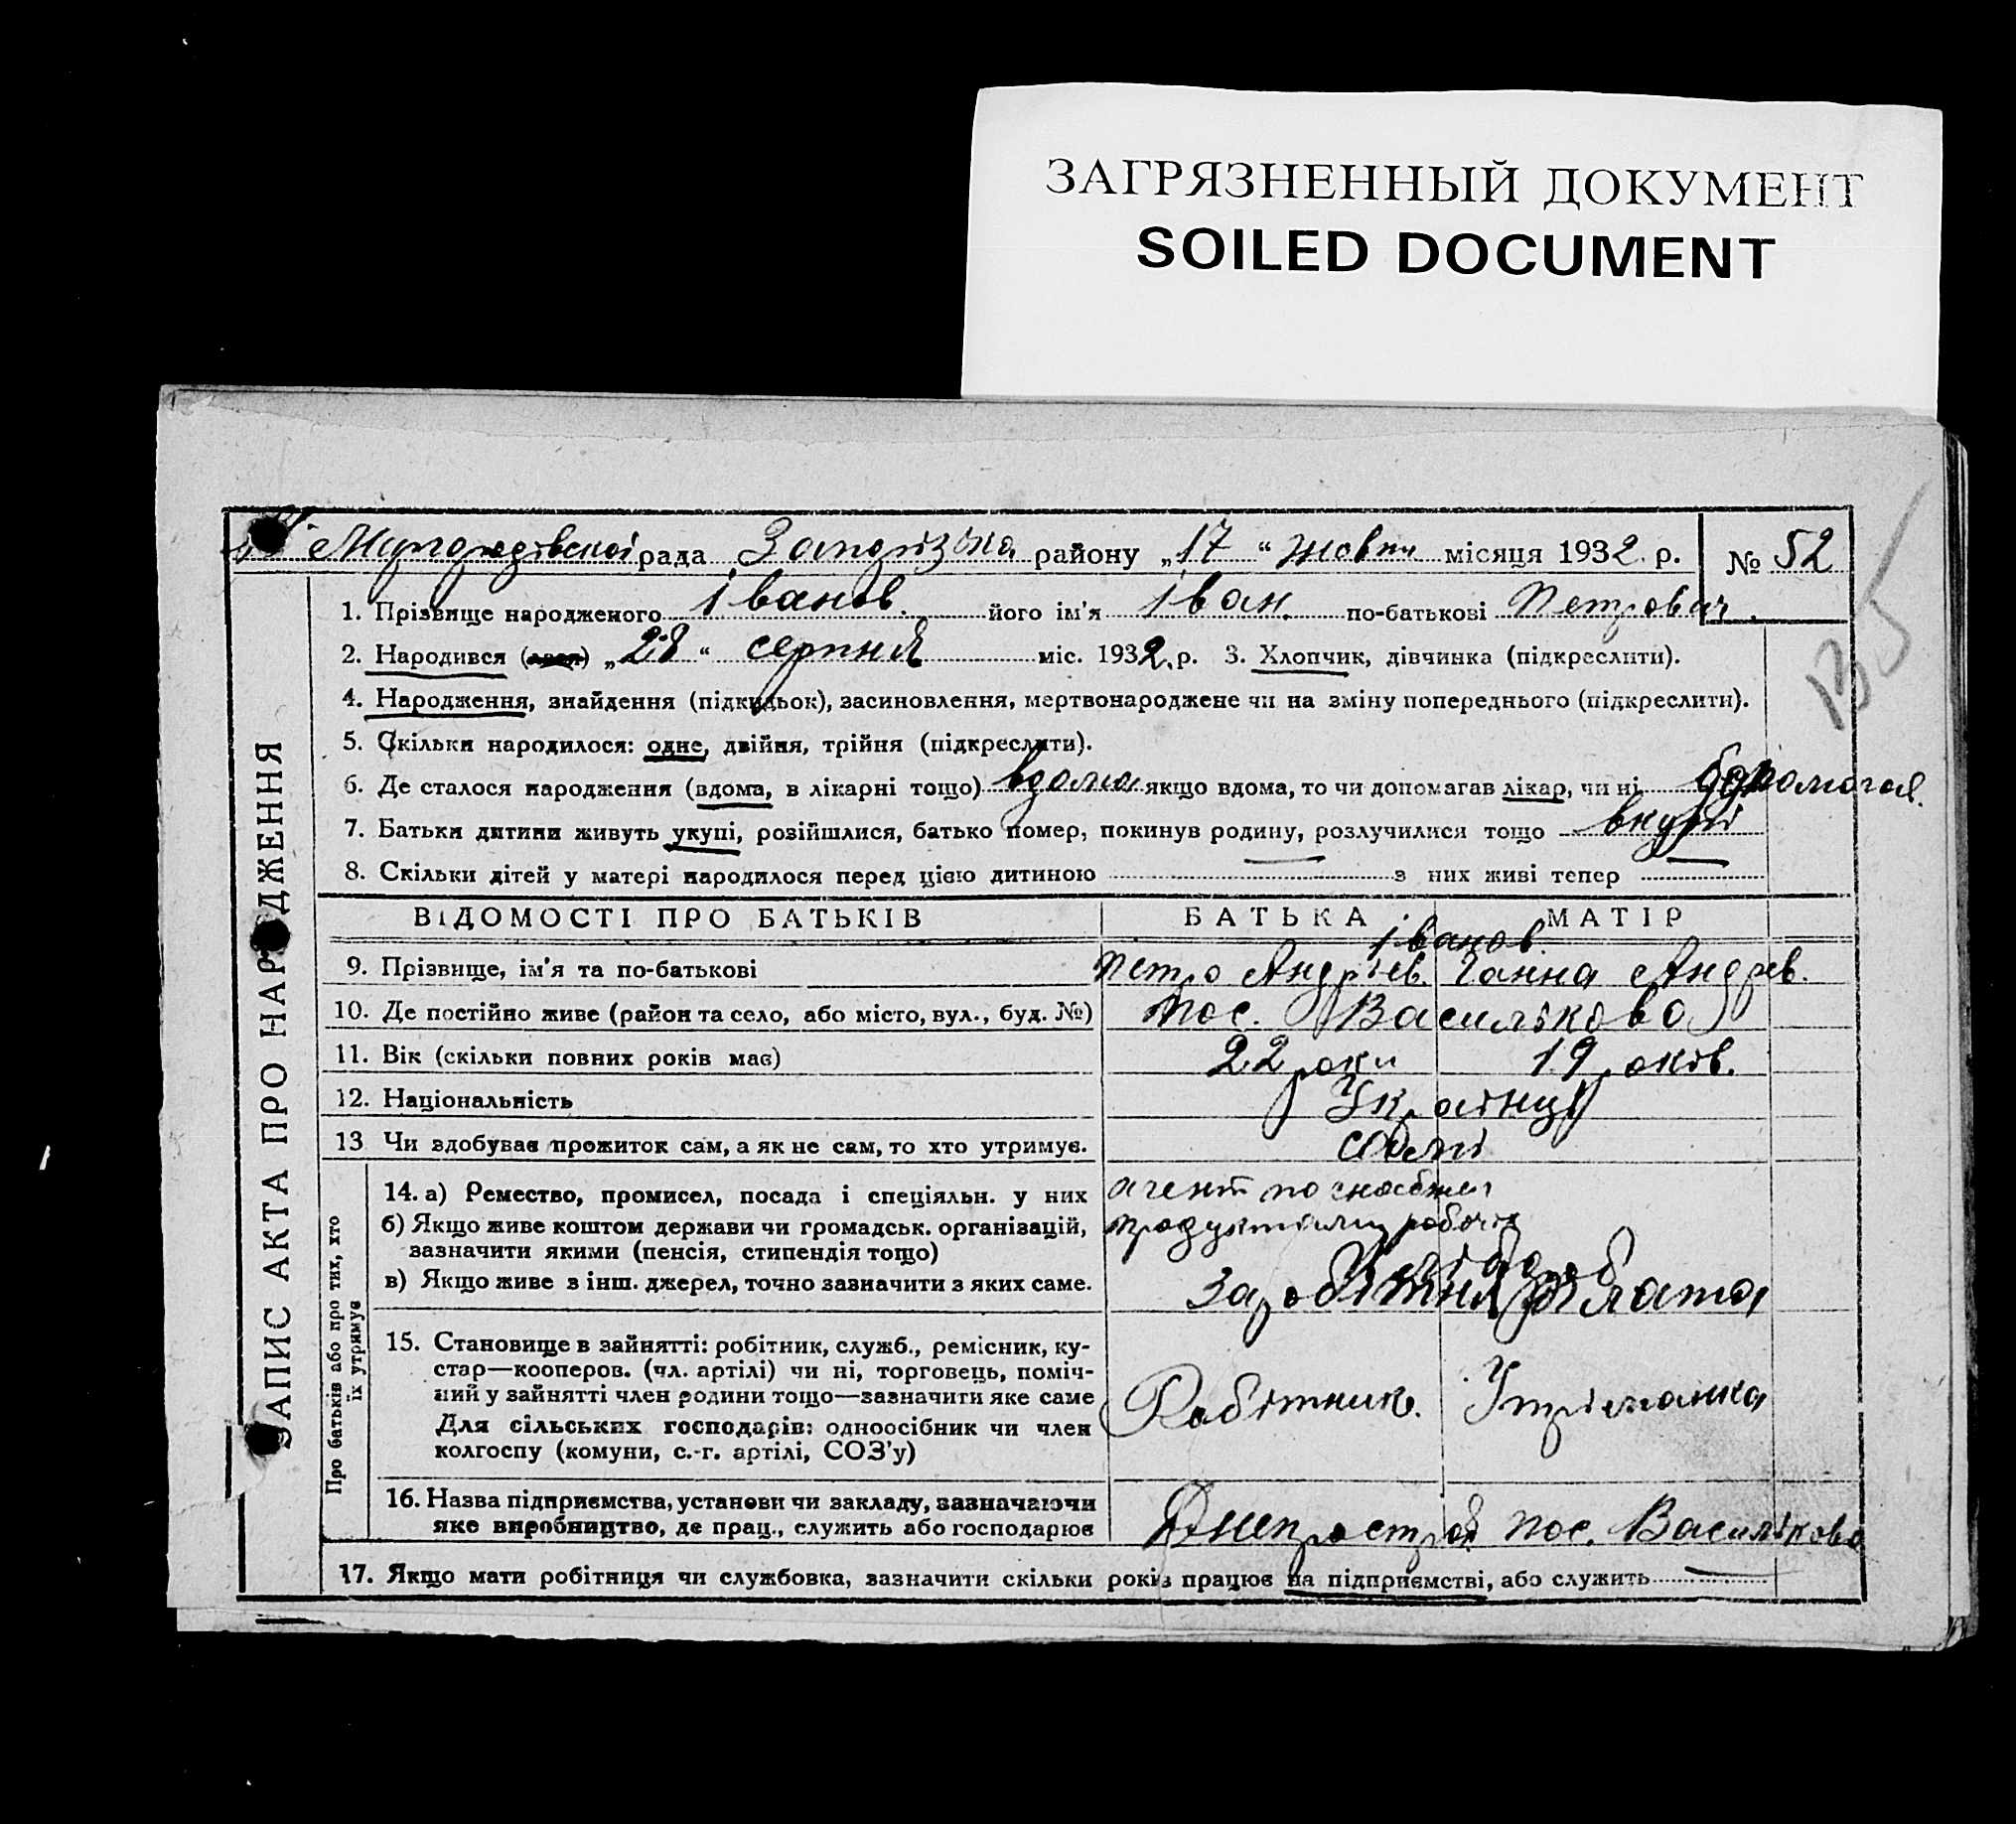 ЗАГРЯЗНЕННЫЙ ДОКУМЕНТ
SOILED DOCUMENT
ЗАПИС АКТА ПРО НАР ДЖЕННЯ
рада Запорізька району „17“ жовтн місяця 1932 р. № 52
135
1. Прізвище народженого Іванов. його ім'я Іван. по-батькові Петрович.
2. Народився „28“ серпня міс. 1932. р. 3. Хлопчик, дівчинка (підкреслити).
4. Народження, знайдення (підкидьок), засиновлення, мертвонароджене чи на зміну попереднього (підкреслити).
5. Скільки народилося: одне, двійня, трійня (підкреслити).
6. Де сталося народження (вдома, в лікарні тощо) вдома якщо вдома, то чи допомагав лікар, чи ні допомогав.
7. Батьки дитини живуть укупі, розійшлися, батько помер, покинув родину, розлучилися тощо вкупі
8. Скільки дітей у матері народилося перед цією дитиною — з них живі тепер —
ВІДОМОСТІ ПРО БАТЬКІВ БАТЬКА МАТІР
Іванов.
9. Прізвище, ім'я та по-батькові Петро Андрієв. Ганна Андрев.
10. Де постійно живе (район та село, або місто, вул., буд. №) пос. Васильково
11. Вік (скільки повних років має) 22 роки 19 років.
12. Національність Українці
13 Чи здобуває прожиток сам, а як не сам, то хто утримує. самі
Про батьків або про тих, хто
їх утримує
14. а) Ремество, промисел, посада і спеціяльн. у них агент по снабжен
б) Якщо живе коштом держави чи громадськ. організацій, продуктами робочих
зазначити якими (пенсія, стипендія тощо)
в) Якщо живе з інш. джерел, точно зазначити з яких саме. заробітня плата
15. Становище в зайнятті: робітник, служб., ремісник, ку-
стар—кооперов. (чл. артілі) чи ні, торговець, поміч-
ний у зайнятті член родини тощо—зазначити яке саме Робітник. Утріманка
Для сільських господарів: одноосібник чи член
колгоспу (комуни, с.-г. артілі, СОЗ'у)
16. Назва підприємства, установи чи закладу, зазначаючи
яке виробництво, де прац., служить або господарює Днепрострой пос. Васильково
17. Якщо мати робітниця чи службовка, зазначити скільки років працює на підприємстві, або служить —